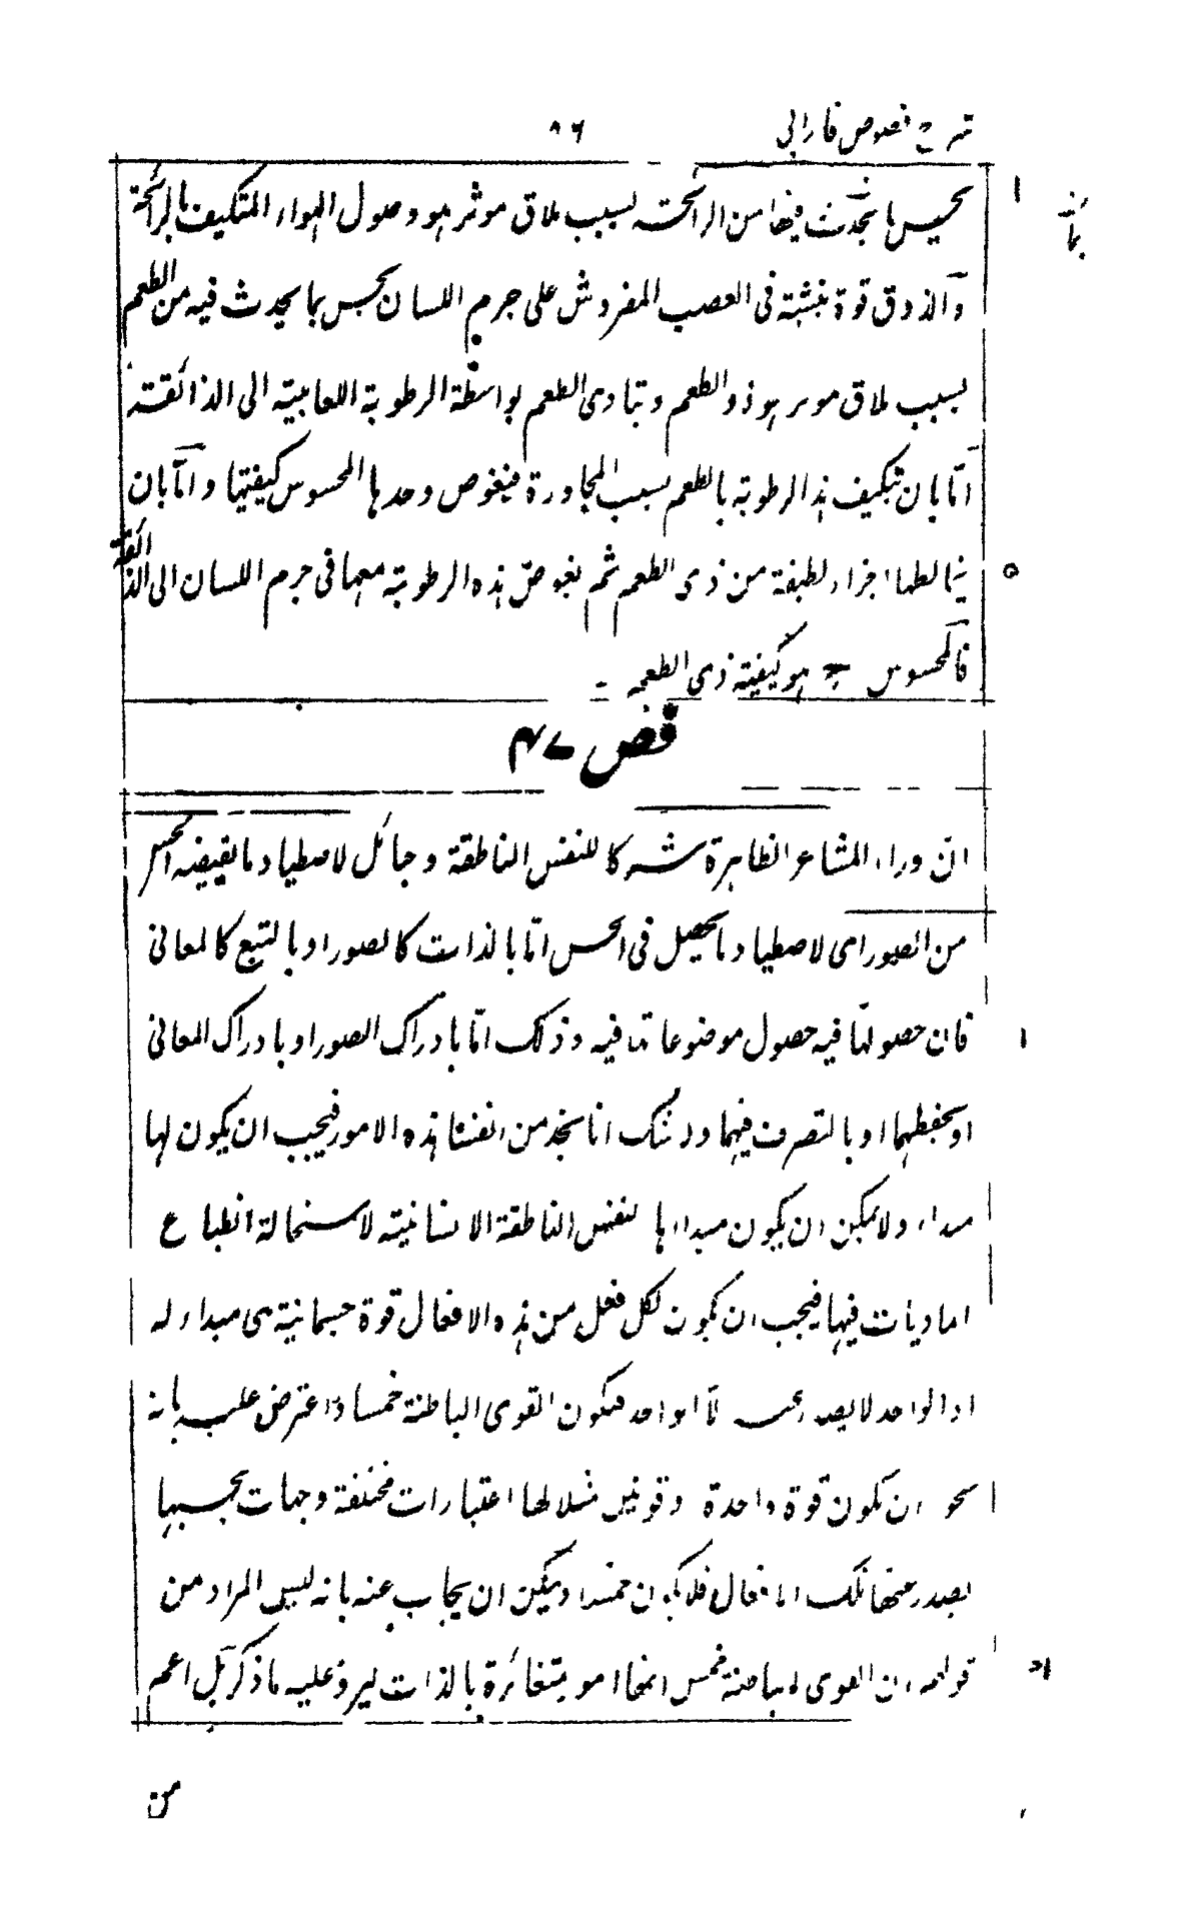 شرح فصوص فارابى ٨٦
يحس ما يتحدث فيها من الرائحة بسبب ملاق موثر هو وصول الهواء المتكيف بالرائحة
والذوق قوة منبثة فى العصب المفروش على جرم اللسان يحس بما يحدث فيه من الطعم
بسبب ملاق موثر هو ذو الطعم وتتادى الطعم بواسطة الرطوبة اللعابية الى الذائقة
اما بان تتكيف هذه الرطوبة بالطعم بسبب المجاورة فيغوص وحدها المحسوس كيفيتها واما بان
يخالطها اجزاء لطيفة من ذى الطعم ثم يغوص هذه الرطوبة معها فى جرم اللسان الى الذائقة
فالمحسوس ح هو كيفية ذى الطعم -
فص ٤٧
ان وراء المشاعر الظاهرة شركا للنفس الناطقة وحبائل لاصطياد ما يقبضه الحس
من الصور اى لاصطياد ما يحصل فى الحس اما بالذات كالصور او بالتبع كالمعانى
فان حصولها فيه حصول موضوعاتها فيه وذلك اما بادراك الصور او بادراك المعانى
او بحفظهما او بالتصرف فيهما وذلك انا نجد من انفسنا هذه الامور فيجب ان يكون لها
مبداء ولا يمكن ان يكون مبداءها النفس الناطقة الانسانية لاستحالة انطباع
الماديات فيها فيجب ان يكون لكل فعل من هذه الافعال قوة جسمانية هى مبداء له
اذ الواحد لا يصدر عنه الا الواحد فتكون القوى الباطنة خمسا واعترض عليه بانه
يجوز ان تكون قوة واحدة وقوتين مثلا لها اعتبارات مختلفة وجهات بحسبها
يصدر عنها تلك الافعال فلا يكون خمسا ويمكن ان يجاب عنه بانه ليس المراد من
قولهم ان القوى الباطنة خمس انها امور متغائرة بالذات ليرد عليه ما ذكر بل اعم
من